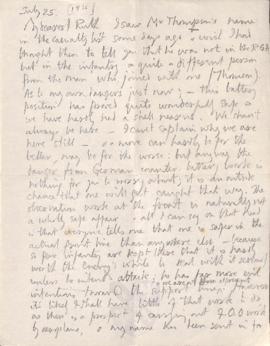 July 25. [1916]
Dearest Ruth I saw Mr Thompson's name
in the casualty list some days ago & wish I had
thought then to tell you that he was not in the R.G.A
but in the infantry, & quite a different person
from the man who joined with me (Thomson).
As to my own dangers just now; – this battery
position has proved quite wonderfully safe &
we have hardly had a shell near us. We shan't
always be here – I can't explain why we are
here still – & a move can hardly be for the
better, may be for the worse: but anyway the
danger from German counter battery work is
nothing for you to worry about; it is an outside
chance that one will get caught that way. The
observation work at the front is naturally not
a wholly safe affair – all I can say on that head
is that everyone tells me that one is safer in the
actual front line than anywhere else – because
so few infantry are kept there that it is hardly
worth the enemy's while to deal with it
unless to intend attack; he has far more evil
intentions toward the support lines. However
it is likely I shall have little of that work to do
as there is a prospect of carrying out
by aeroplane, & my name has been sent in for